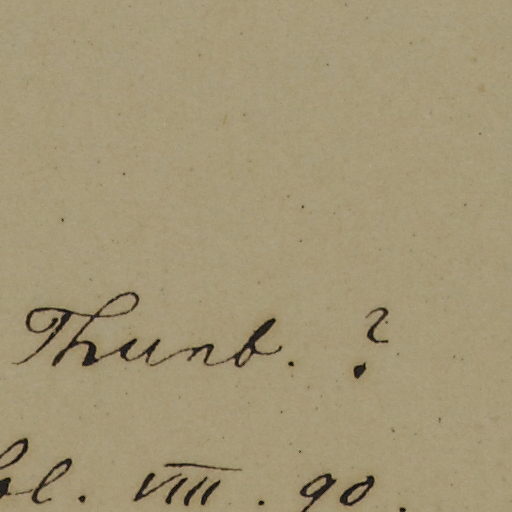 Thunb. ?
ol. VIII. 90.